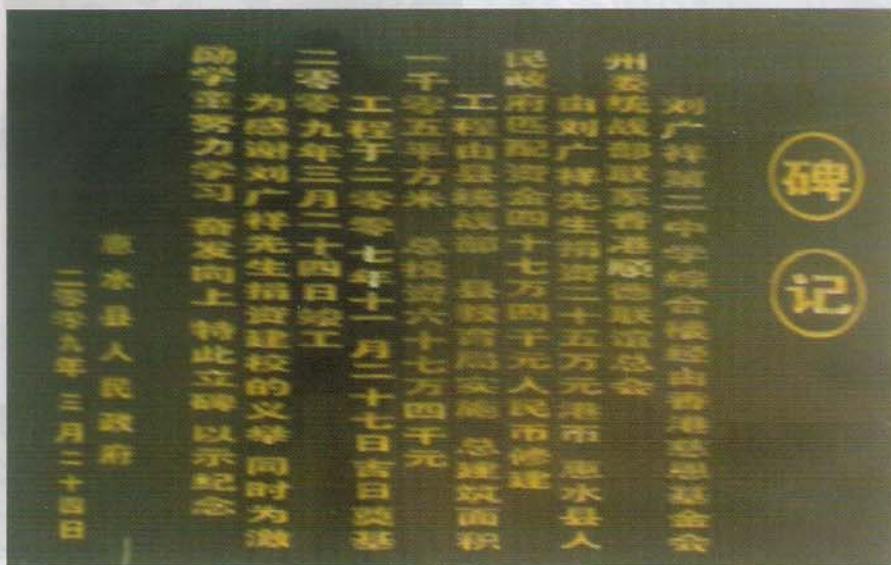 碑记
刘广祥第二中学综合楼经由香港慈恩基金会
州委统战部联系香港顺德联谊总会
由刘广祥先生捐资二十五万元港币 惠水县人
民政府匹配资金四十七万四千元人民币修建
工程由县统战部 县教育局实施 总建筑面积
一千零五平方米 总投资六十七万四千元
工程于二零零七年十一月二十七日吉日奠基
二零零九年三月二十四日竣工
为感谢刘广祥先生捐资建校的义举 同时为激
励学生努力学习 奋发向上 特此立碑 以示纪念
惠水县人民政府
二零零九年 三月二十四日